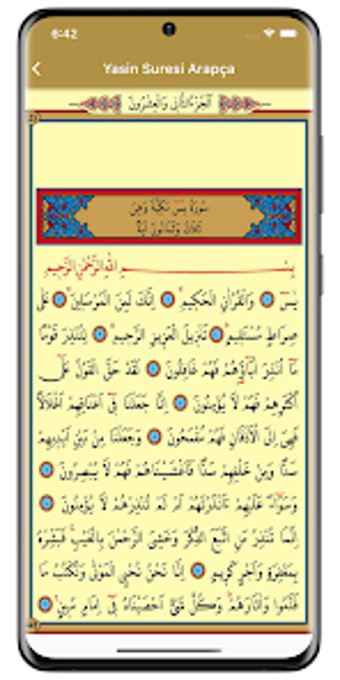 6:42
Yasin Suresi Arapça
اَلْجُزْءُ الثَّانِي وَالْعِشْرُونَ
سُورَةُ يٰسٓ مَكِّيَّةٌ وَهِيَ
ثَلَاثٌ وَثَمَانُونَ اٰيَةً
بِسْمِ اللّٰهِ الرَّحْمٰنِ الرَّحِيمِ
يٰسٓ ۝ وَالْقُرْاٰنِ الْحَكِيمِ ۝ اِنَّكَ لَمِنَ الْمُرْسَلِينَ ۝ عَلٰى
صِرَاطٍ مُسْتَقِيمٍ ۝ تَنْزِيلَ الْعَزِيزِ الرَّحِيمِ ۝ لِتُنْذِرَ قَوْمًا
مَٓا اُنْذِرَ اٰبَٓاؤُ۬هُمْ فَهُمْ غَافِلُونَ ۝ لَقَدْ حَقَّ الْقَوْلُ عَلٰٓى
اَكْثَرِهِمْ فَهُمْ لَا يُؤْمِنُونَ ۝ اِنَّا جَعَلْنَا فِٓي اَعْنَاقِهِمْ اَغْلَالًا
فَهِيَ اِلَى الْاَذْقَانِ فَهُمْ مُقْمَحُونَ ۝ وَجَعَلْنَا مِنْ بَيْنِ اَيْدِيهِمْ
سَدًّا وَمِنْ خَلْفِهِمْ سَدًّا فَاَغْشَيْنَاهُمْ فَهُمْ لَا يُبْصِرُونَ ۝
وَسَوَٓاءٌ عَلَيْهِمْ ءَاَنْذَرْتَهُمْ اَمْ لَمْ تُنْذِرْهُمْ لَا يُؤْمِنُونَ ۝
اِنَّمَا تُنْذِرُ مَنِ اتَّبَعَ الذِّكْرَ وَخَشِيَ الرَّحْمٰنَ بِالْغَيْبِ فَبَشِّرْهُ
بِمَغْفِرَةٍ وَاَجْرٍ كَرِيمٍ ۝ اِنَّا نَحْنُ نُحْيِ الْمَوْتٰى وَنَكْتُبُ مَا
قَدَّمُوا وَاٰثَارَهُمْ وَكُلَّ شَيْءٍ اَحْصَيْنَاهُ فِٓي اِمَامٍ مُبِينٍ ۝